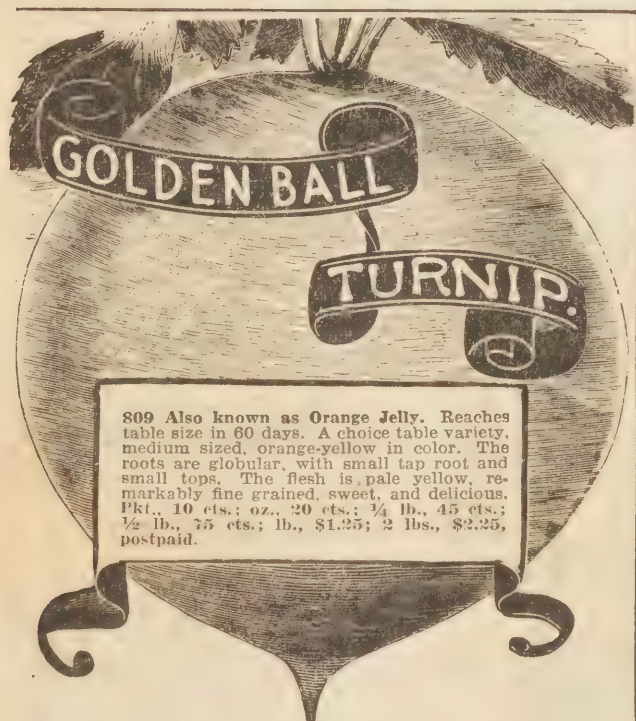 GOLDEN BALL
TURNIP.
809 Also known as Orange Jelly. Reaches
table size in 60 days. A choice table variety,
medium sized, orange-yellow in color. The
roots are globular, with small tap root and
small tops. The flesh is pale yellow, re-
markably fine grained, sweet, and delicious.
Pkt., 10 cts.; oz., 20 cts.; ¼ lb., 45 cts.;
½ lb., 75 cts.; lb., $1.25; 2 lbs., $2.25,
postpaid.